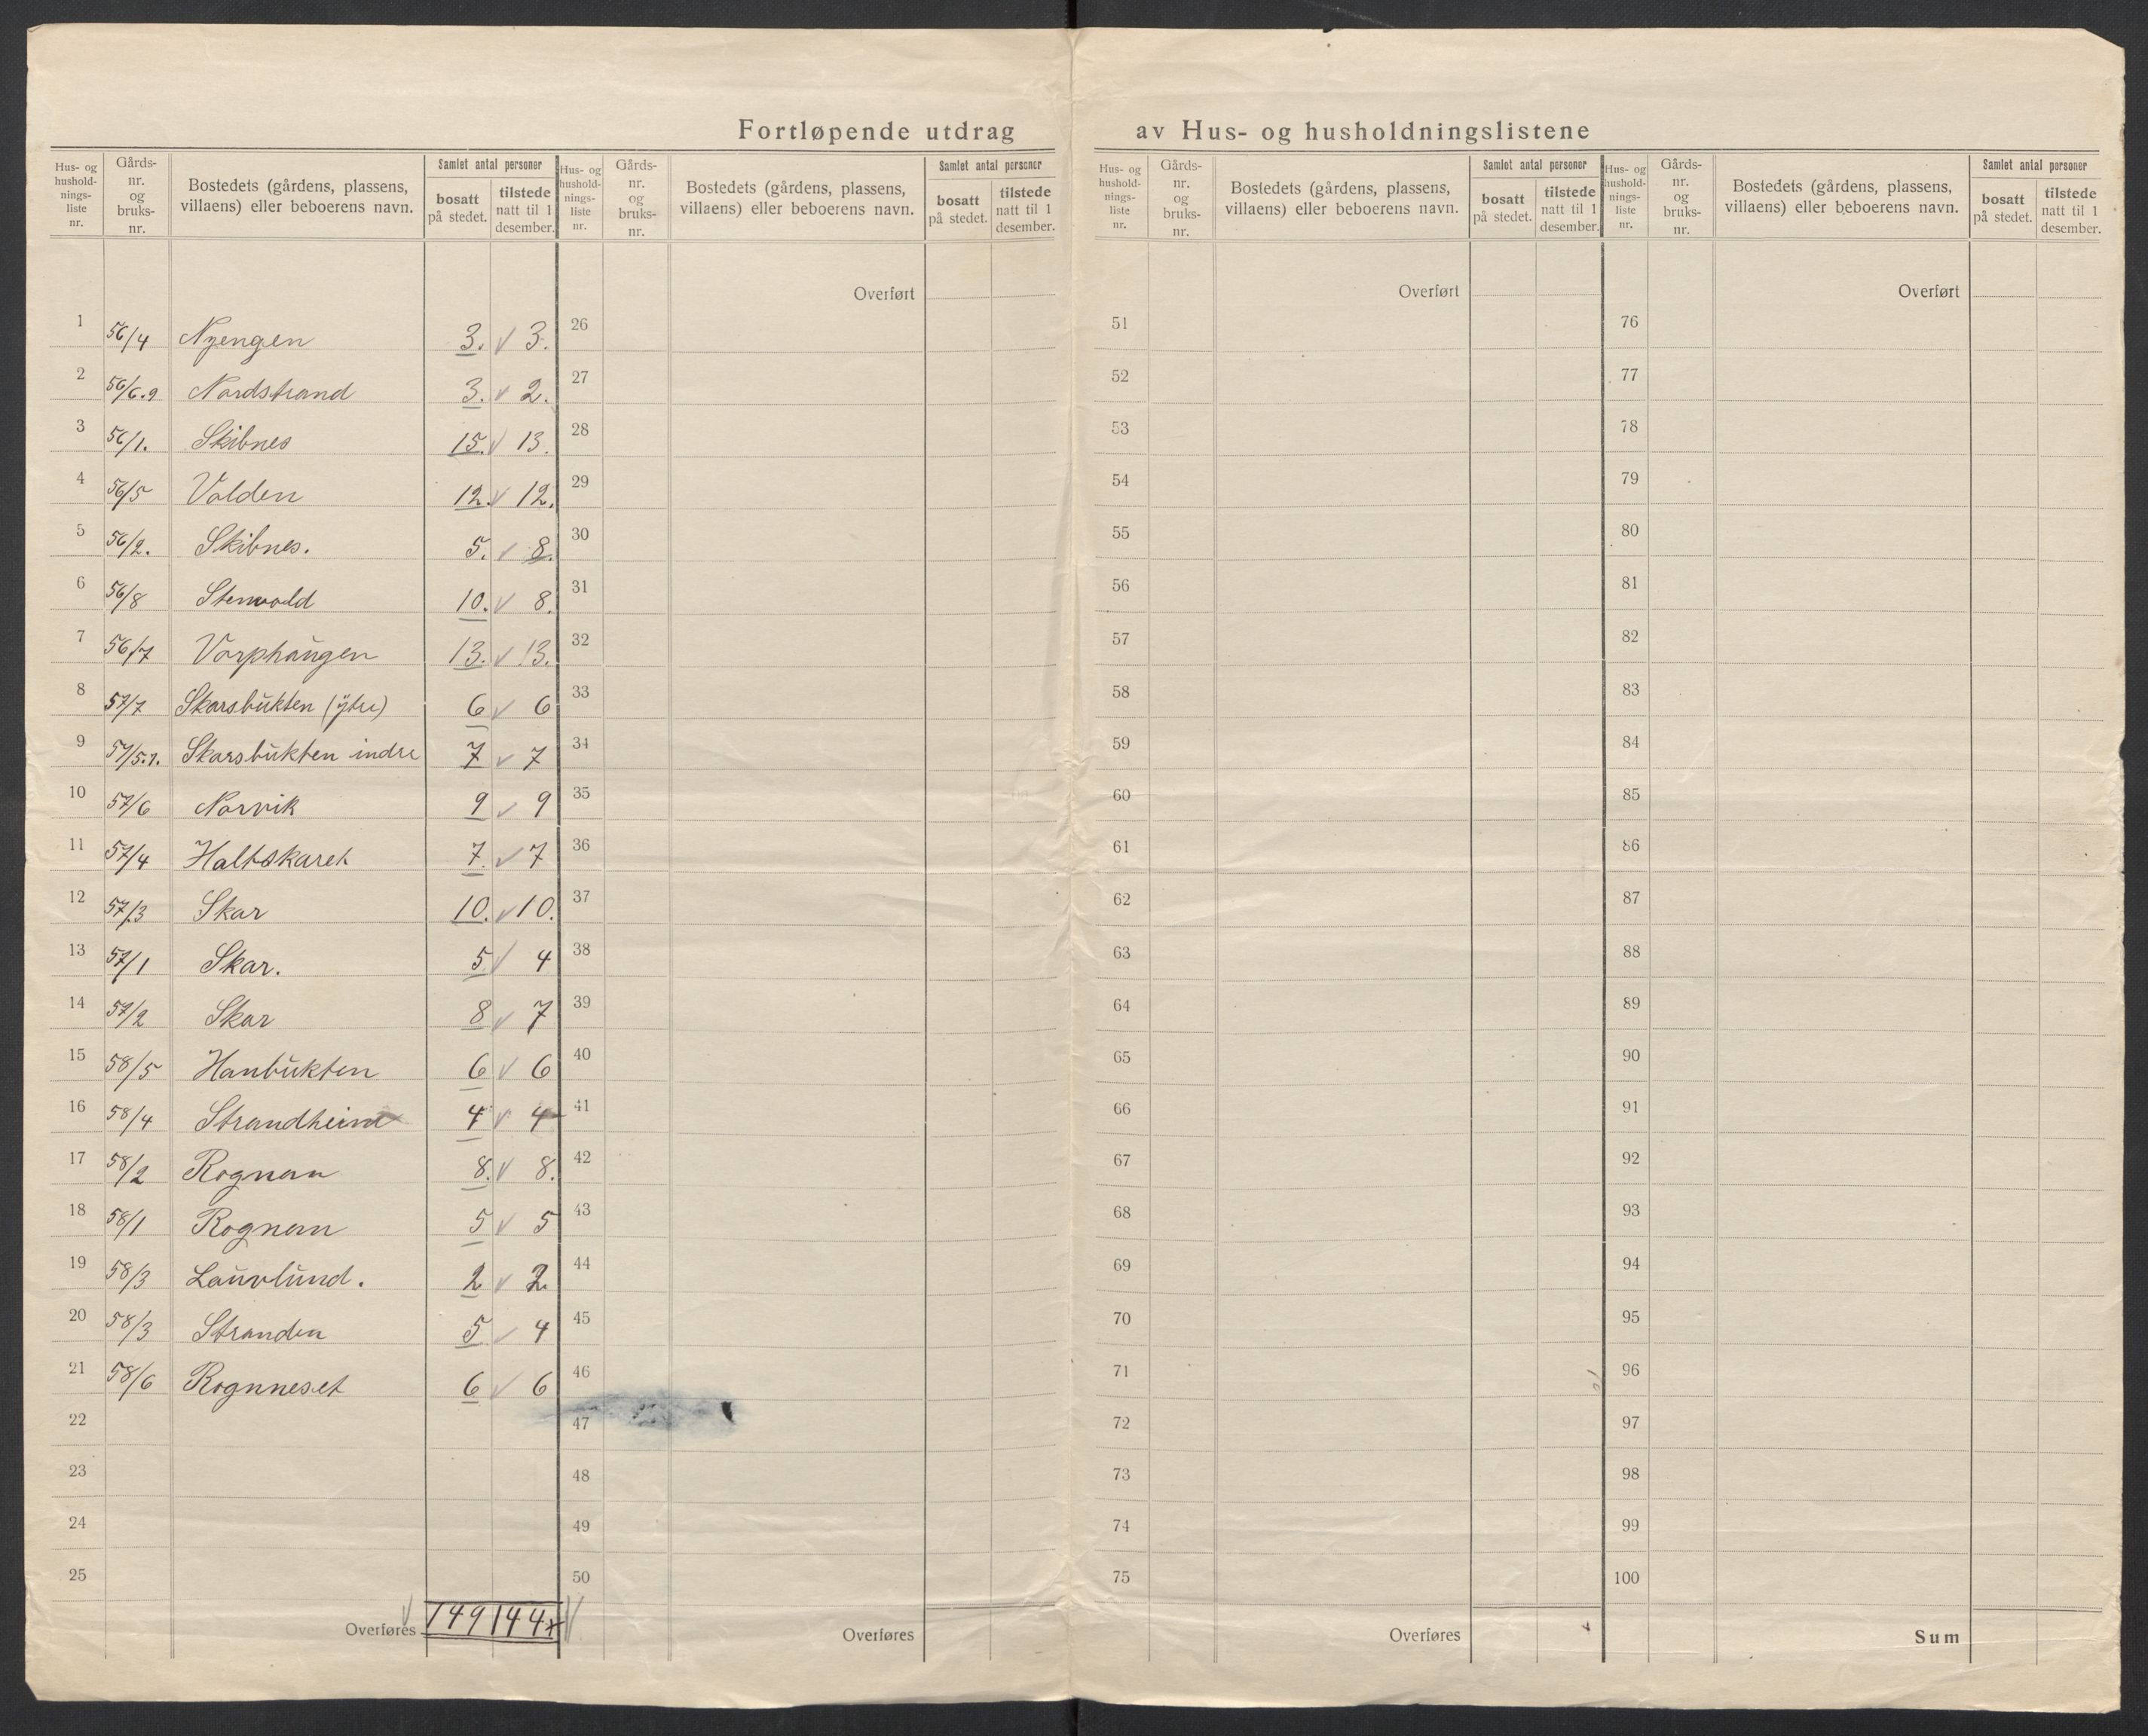 Fortløpende utdrag av Hus- og husholdningslistene
Hus- og hushold-nings-liste nr. | Gårds-nr. og bruks-nr. | Bostedets (gårdens, plassens, villaens) eller beboerens navn. | Samlet antal personer | bosatt på stedet. | tilstede natt til 1 desember.
1 56/4 Nyengen 3. v 3.
2 56/6.9 Nordstrand 3. v 2.
3 56/1. Skibnes 15. v 13.
4 56/5 Volden 12. v 12.
5 56/2. Skibnes. 5. v 8.
6 56/8 Stenvold 10. v 8.
7 56/7 Vorphaugen 13. v 13.
8 57/7 Skarsbukten (ytre) 6 v 6
9 Skarsbukten indre 7 v 7
10 57/6 Norvik 9 v 9
11 57/4 Haltskaret 7. v 7
12 57/3 Skar 10. v 10.
13 57/1 Skar. 5 v 4
14 57/2 Skar 8 v 7
15 58/5 Hanbukten 6 v 6
16 58/4 Strandheim 4 v 4
17 58/2 Rognan 8. v 8.
18 58/1 Rognan 5 v 5
19 58/3 Lauvlund. 2 v 2.
20 58/3 Stranden 5 v 4
21 58/6 Rognneset 6 v 6
22
23
24
25
Overføres 149 144
Hus- og hushold-nings-liste nr. | Gårds-nr. og bruks-nr. | Bostedets (gårdens, plassens, villaens) eller beboerens navn. | Samlet antal personer | bosatt på stedet. | tilstede natt til 1 desember.
Overført
26
27
28
29
30
31
32
33
34
35
36
37
38
39
40
41
42
43
44
45
46
47
48
49
50
Overføres
Hus- og hushold-nings-liste nr. | Gårds-nr. og bruks-nr. | Bostedets (gårdens, plassens, villaens) eller beboerens navn. | Samlet antal personer | bosatt på stedet. | tilstede natt til 1 desember.
Overført
51
52
53
54
55
56
57
58
59
60
61
62
63
64
65
66
67
68
69
70
71
72
73
74
75
Overføres
Hus- og hushold-nings-liste nr. | Gårds-nr. og bruks-nr. | Bostedets (gårdens, plassens, villaens) eller beboerens navn. | Samlet antal personer | bosatt på stedet. | tilstede natt til 1 desember.
Overført
76
77
78
79
80
81
82
83
84
85
86
87
88
89
90
91
92
93
94
95
96
97
98
99
100
Sum